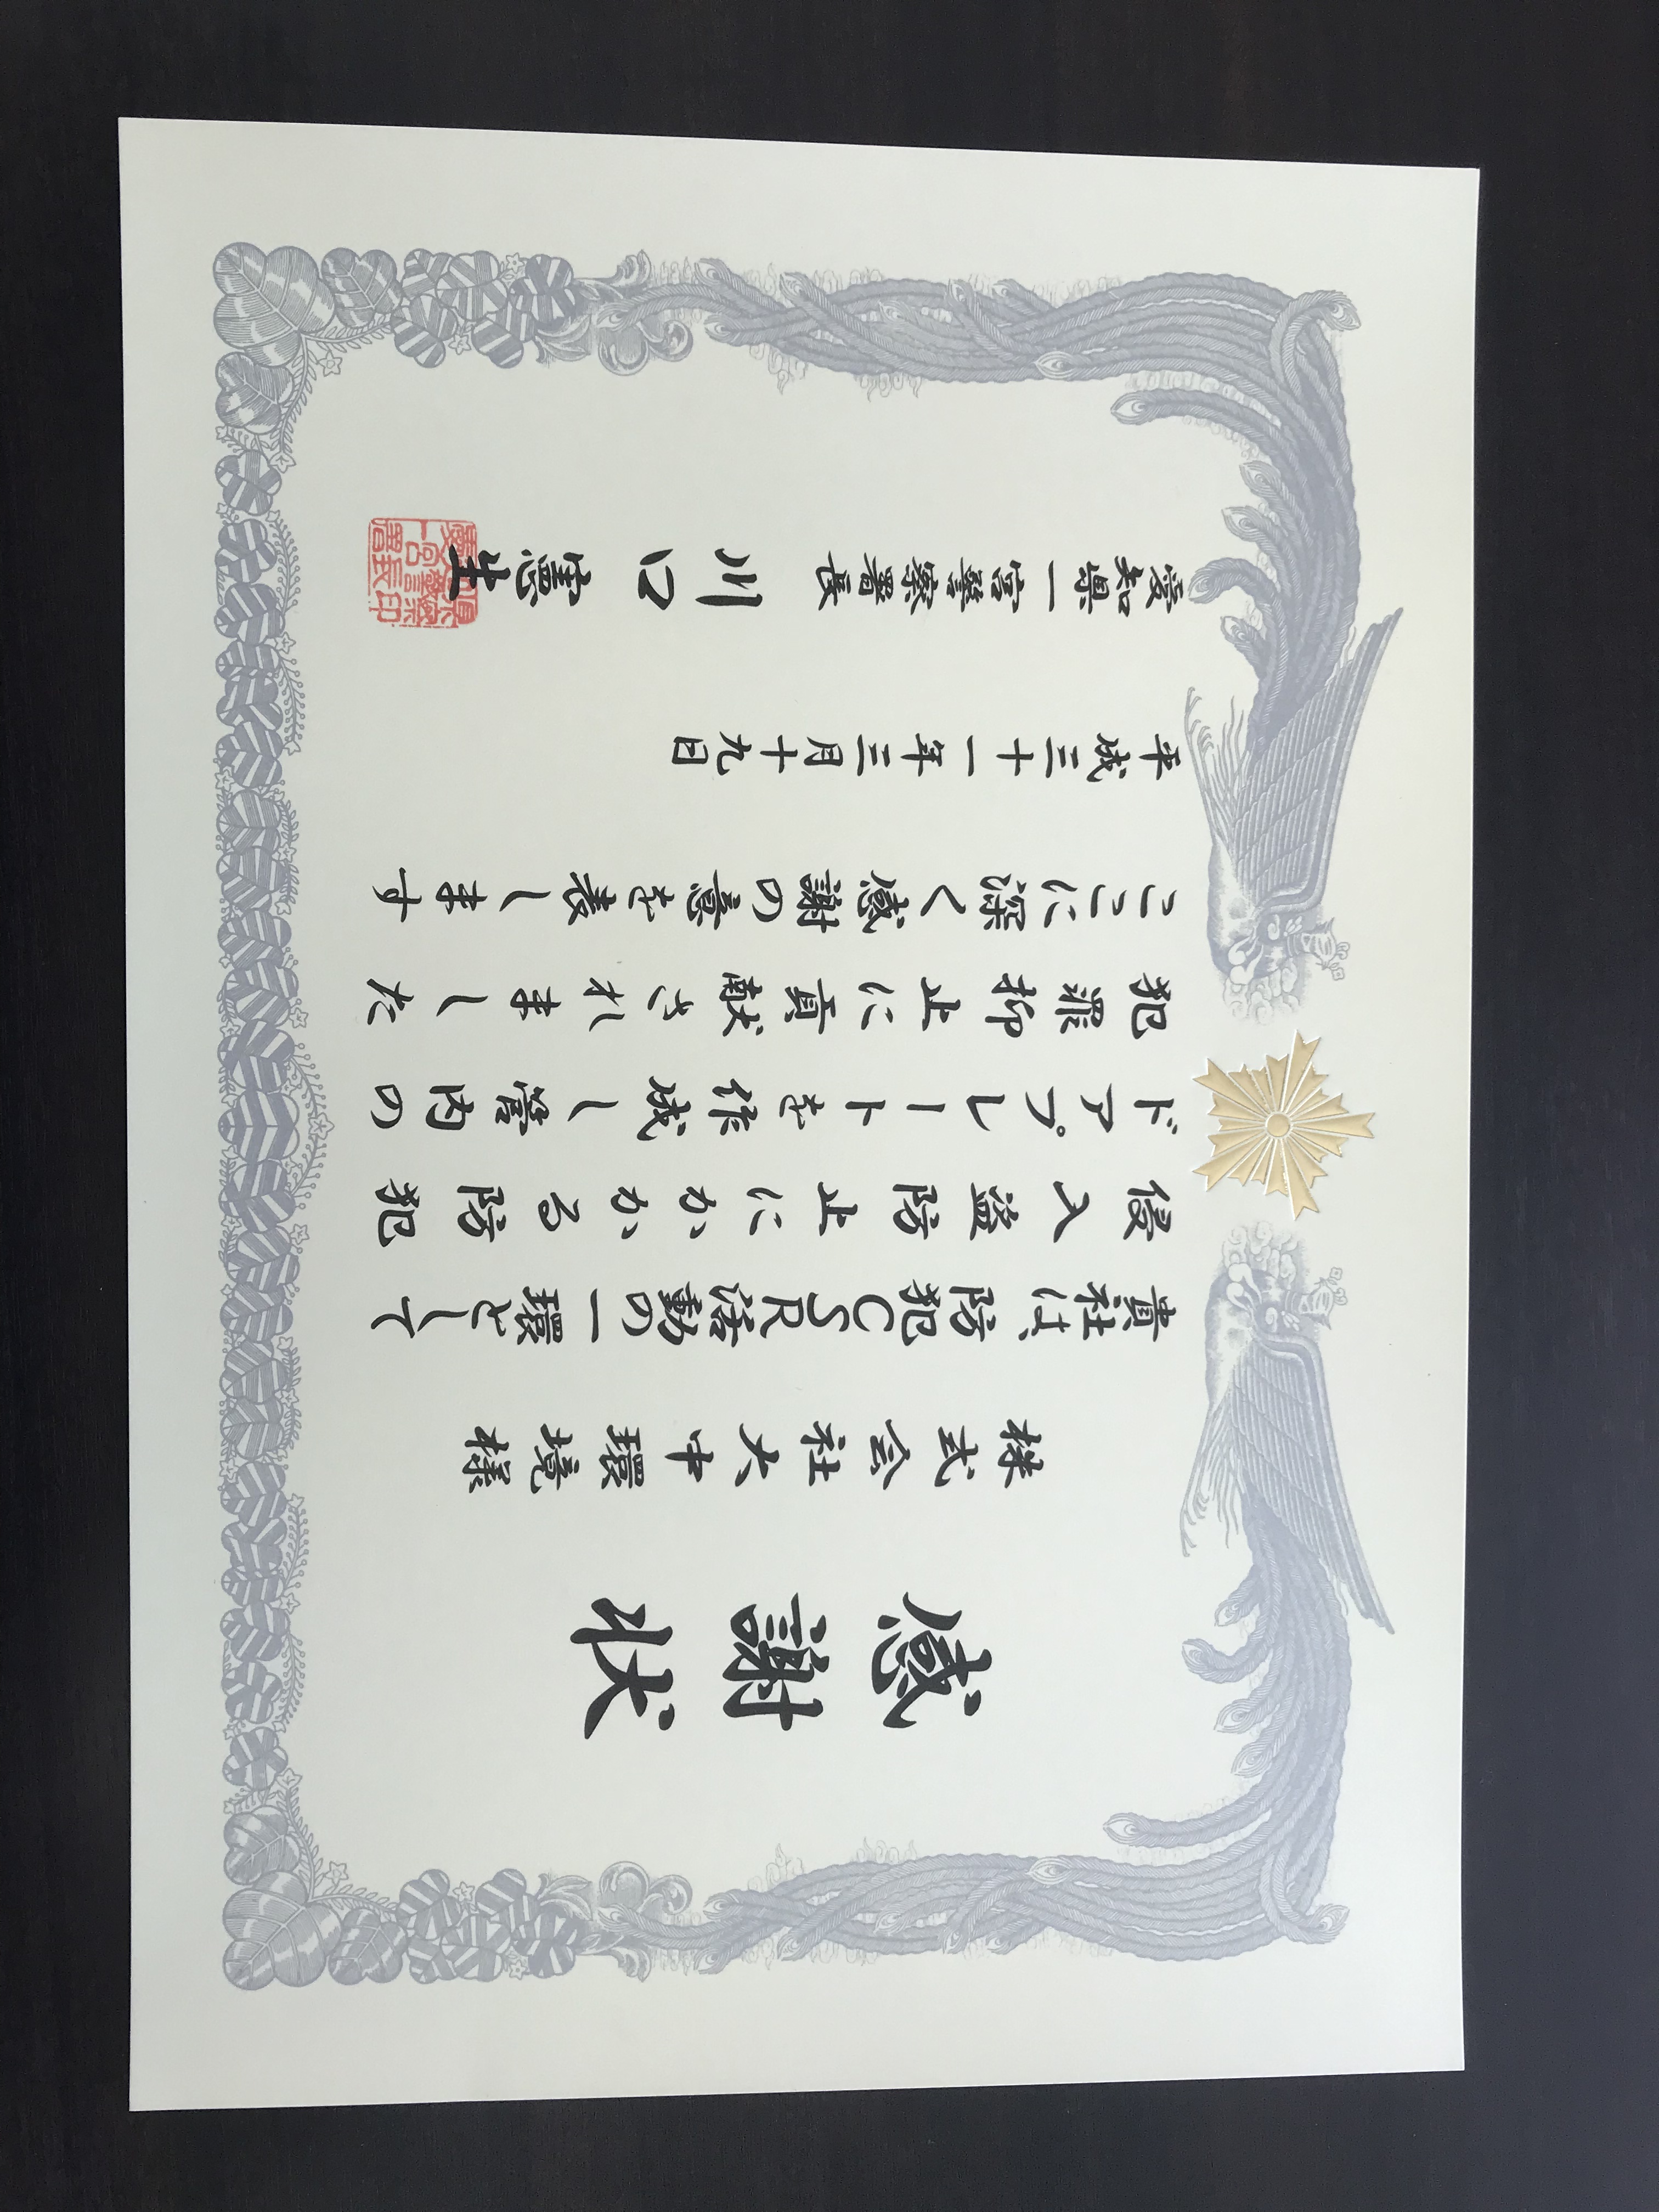 感謝状
株式会社大中環境様
貴社は、防犯CSR活動の一環として
侵入盗防止にかかる防犯
ドアプレートを作成し管内の
犯罪抑止に貢献されました
ここに深く感謝の意を表します
平成三十一年三月十九日
愛知県一宮警察署長
川口憲生
愛知県一宮警察署長印